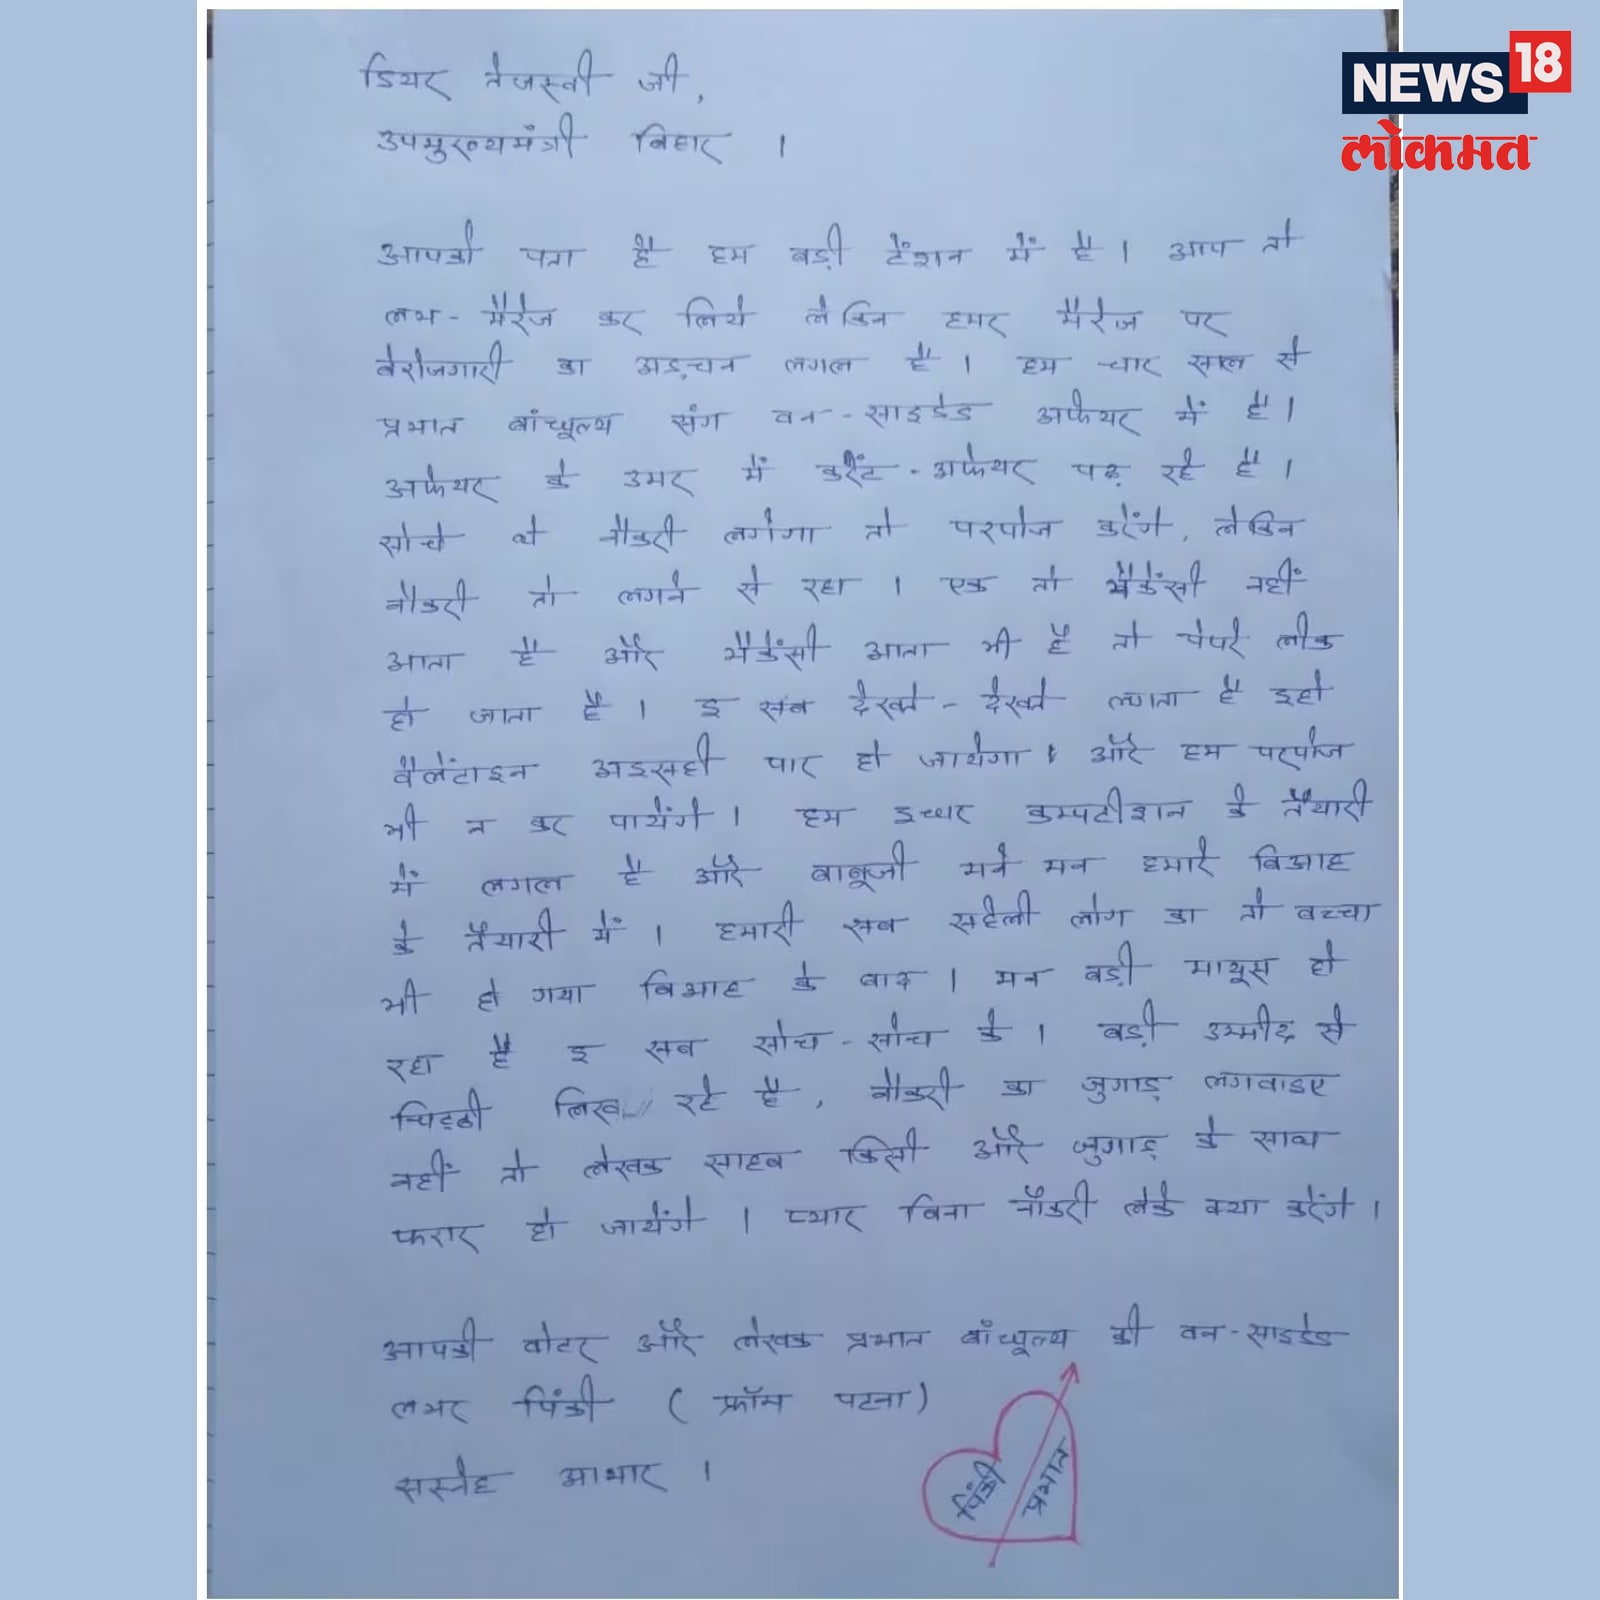 NEWS 18
लोकमत
डियर तेजस्वी जी,
उपमुख्यमंत्री बिहार ।
आपको पता है हम बड़ी टेंशन में है । आप तो
लभ-मैरेज कर लिये लेकिन हमर मैरेज पर
बेरोजगारी का अड़चन लगल है । हम चार साल से
प्रभात बांधूल्य संग वन-साइडेड अफेयर में है ।
अफेयर के उमर में करेंट-अफेयर पढ़ रहे है ।
सोचे थे नौकरी लगेगा तो परपोज करेंगे, लेकिन
नौकरी तो लगने से रहा । एक तो भैकेंसी नहीं
आता है और भैकेंसी आता भी है तो पेपरे लीक
हो जाता है । इ सब देखते-देखते लगता है इहो
वैलेंटाइन अइसही पार हो जायेगा । और हम परपोज
भी न कर पायेंगे । हम इधर कम्पटीशन के तैयारी
में लगल है और बाबूजी मने मन हमारे बिआह
के तैयारी में । हमारी सब सहेली लोग का तो बच्चा
भी हो गया बिआह के बाद । मन बड़ी मायूस हो
रहा है इ सब सोच-सोच के । बड़ी उम्मीद से
चिट्ठी लिख रहे है, नौकरी का जुगाड़ लगवाइए
नहीं तो लेखक साहब किसी और जुगाड़ के साथ
फरार हो जायेंगे । प्यार बिना नौकरी लेके क्या करेंगे ।
आपकी वोटर और लेखक प्रभात बाँधूल्य की वन-साइडेड
लभर पिंकी ( फ्रॉम पटना )
सस्नेह आभार ।
पिंकी प्रभात